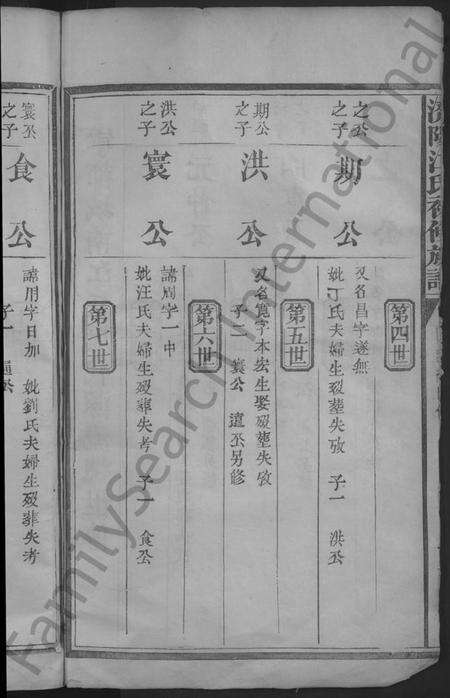 第四世
之公
之子
期公
又名昌字遂無
妣丁氏夫婦生歿塟失攷 子一 洪公
第五世
期公
之子
洪公
又名寬字本宏生娶歿塟失攷
子一 寰公 遺丕另修
第六世
洪公
之子
寰公
諱周字一中
妣汪氏夫婦生歿葬失考 子一 食公
第七世
寰公
之子
食公
諱用字日加 妣劉氏夫婦生歿葬失考
子一
FamilySearch International